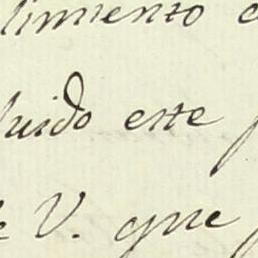 limiento
luido este
V. que